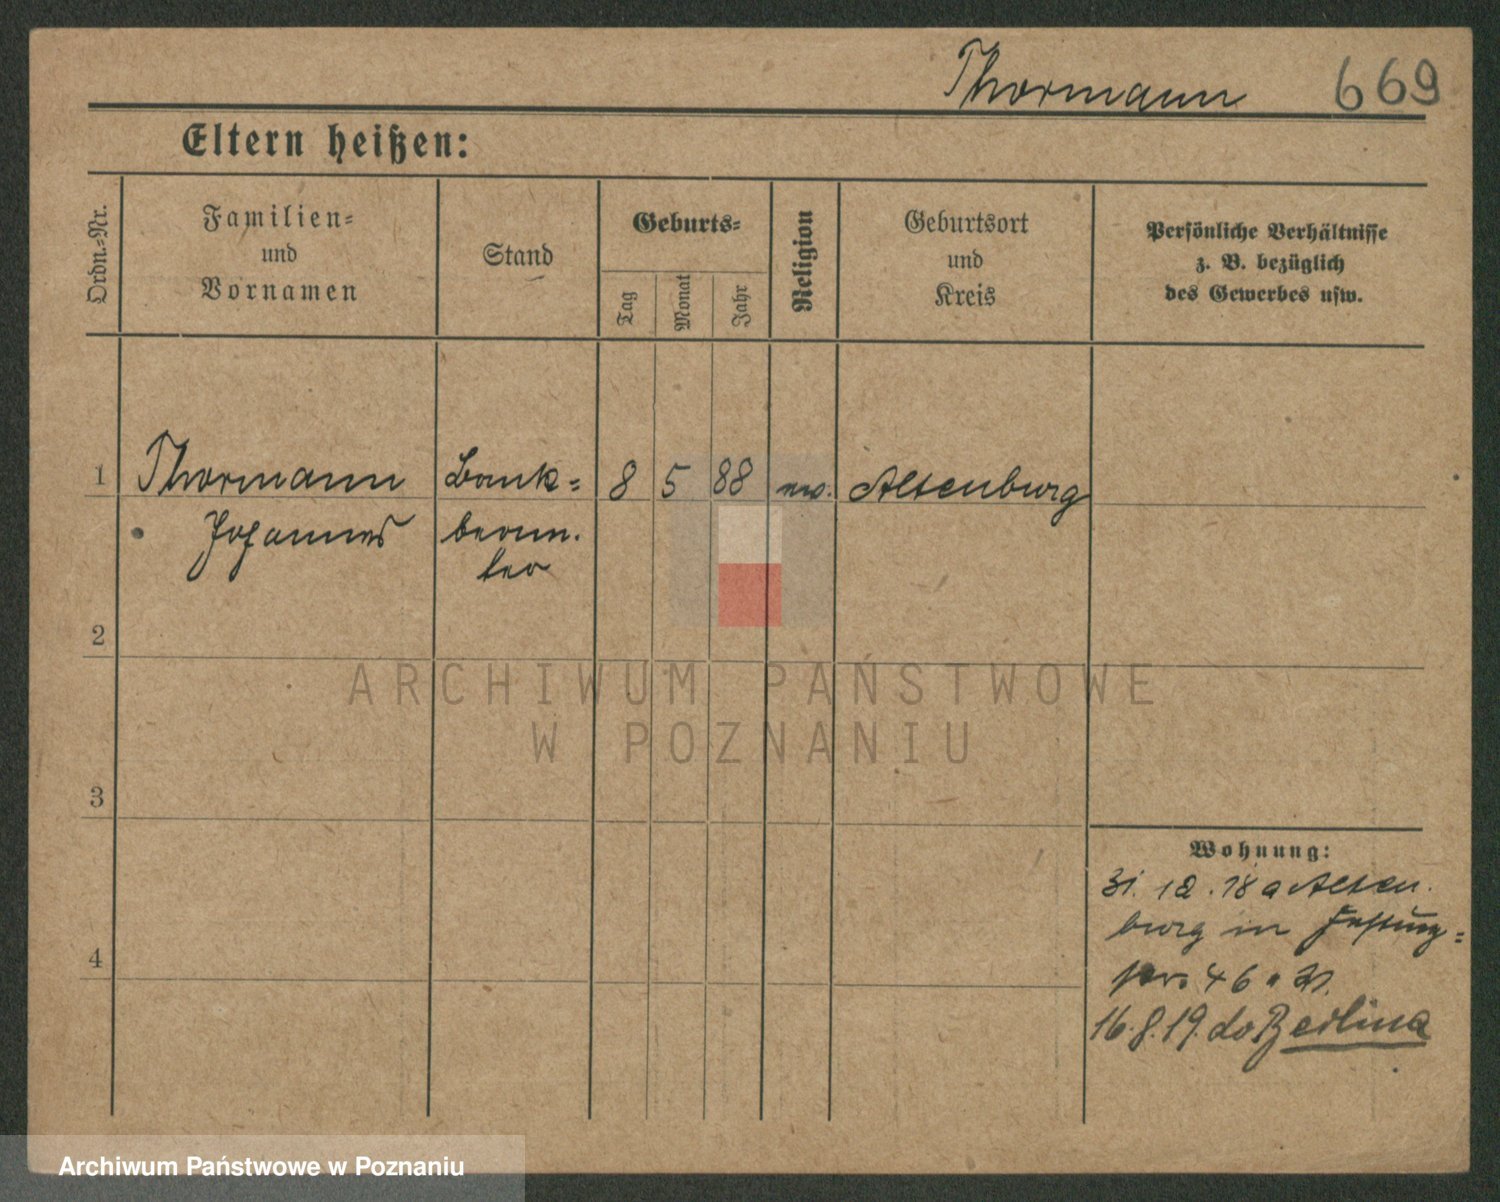 Thormann 669
Eltern heißen:
Ordn.-Nr.
Familien-
und
Vornamen
Stand
Geburts-
Tag
Monat
Jahr
Religion
Geburtsort
und
Kreis
Persönliche Verhältnisse
z. B. bezüglich
des Gewerbes usw.
1 Thormann Bank- 8 5 88 ev. Altenburg
Johannes beam-
ter
2
3
4
Wohnung:
31. 12. 18 a Alten.
burg in Festung-
46
16. 8. 19. do Berlina
ARCHIWUM PAŃSTWOWE
W POZNANIU
Archiwum Państwowe w Poznaniu